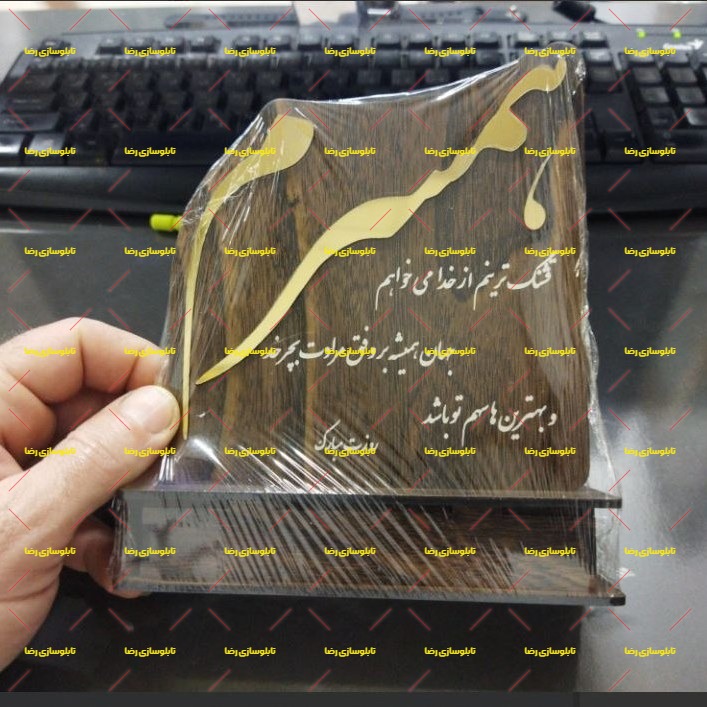 همسرم
قشنگ‌ترینم از خدا می خواهم
جهان همیشه بر وفق مرادت بچرخد
و بهترین ها سهم تو باشد
روزت مبارک
تابلوسازی رضا